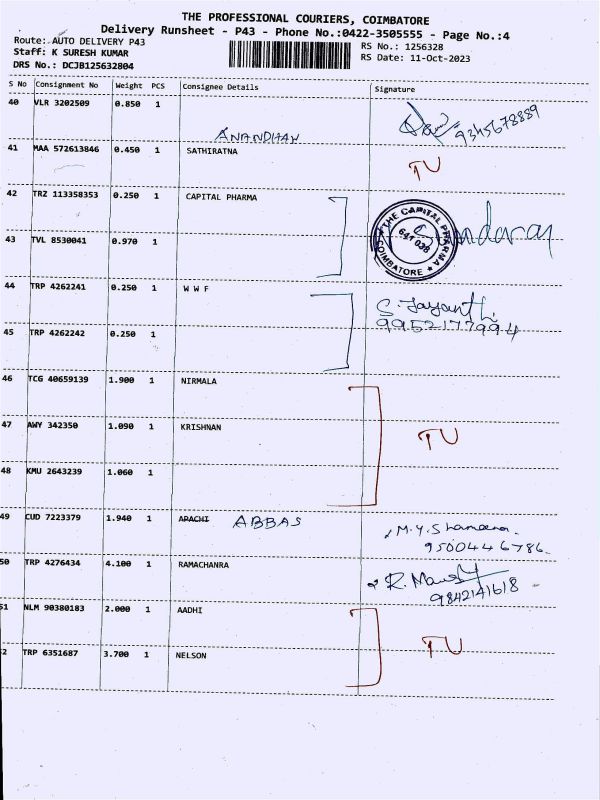 THE PROFESSIONAL COURIERS, COIMBATORE
Delivery Runsheet - P43 - Phone No.:0422-3505555 - Page No.:4
Route: AUTO DELIVERY P43
Staff: K SURESH KUMAR
DRS No.: DCJB125632804
RS No.: 1256328
RS Date: 11-Oct-2023
S No Consignment No Weight PCS Consignee Details Signature
40 VLR 3202509 0.850 1
ANANDHAN 9345678889
41 MAA 572613846 0.450 1 SATHIRATNA TU
42 TRZ 113358353 0.250 1 CAPITAL PHARMA
THE CAPITAL PHARMA
641 038
COIMBATORE
43 TVL 8530041 0.970 1
44 TRP 4262241 0.250 1 W W F S. Jayanthi
9952177994
45 TRP 4262242 0.250 1
46 TCG 40659139 1.900 1 NIRMALA
47 AWY 342350 1.090 1 KRISHNAN TU
48 KMU 2643239 1.060 1
49 CUD 7223379 1.940 1 APACHI ABBAS M.Y.S
9500446786.
50 TRP 4276434 4.100 1 RAMACHANRA R.
9842141618
51 NLM 90380183 2.000 1 AADHI
TU
2 TRP 6351687 3.700 1 NELSON